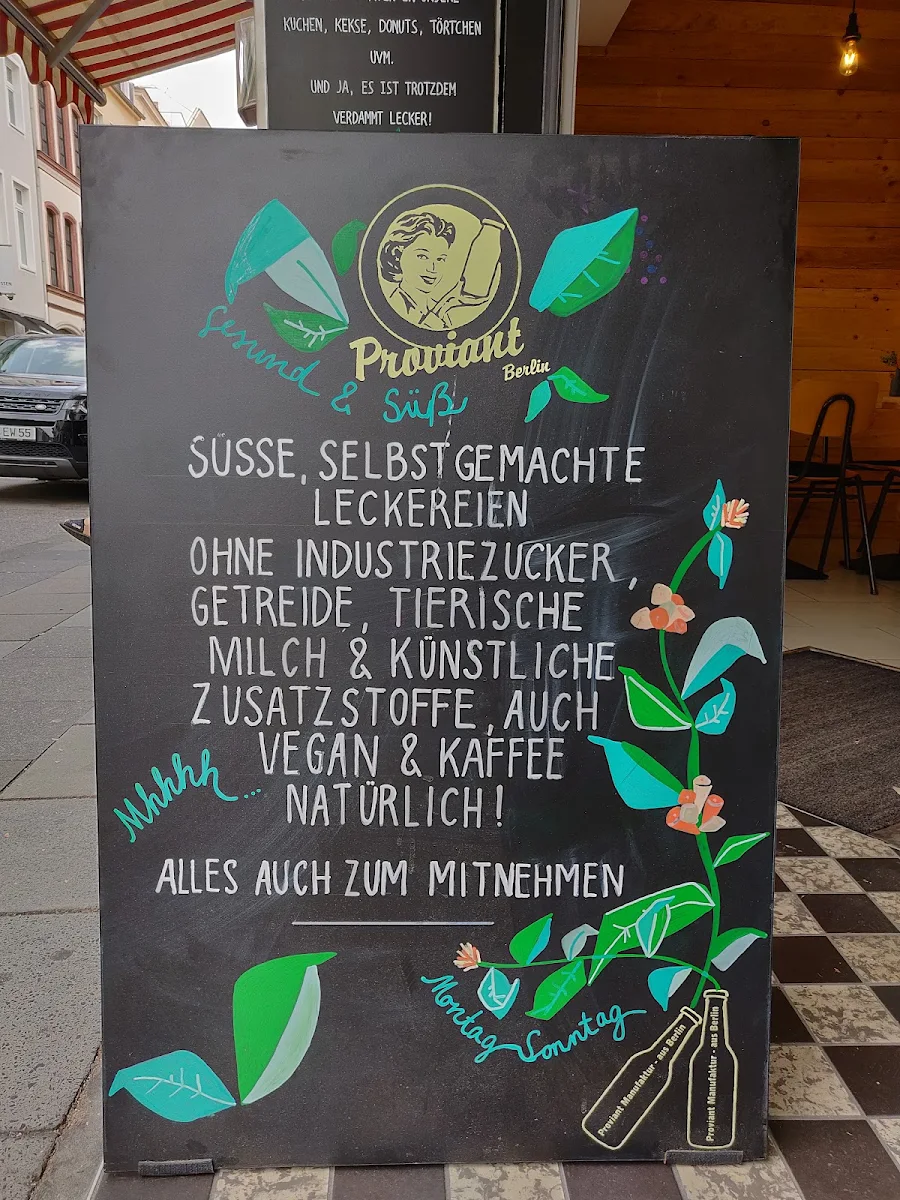 KUCHEN, KEKSE, DONUTS, TÖRTCHEN
UVM.
UND JA, ES IST TROTZDEM
VERDAMMT LECKER!
Proviant
Berlin
Gesund & Süß
SÜSSE, SELBSTGEMACHTE
LECKEREIEN
OHNE INDUSTRIEZUCKER,
GETREIDE, TIERISCHE
MILCH & KÜNSTLICHE
ZUSATZSTOFFE, AUCH
VEGAN & KAFFEE
NATÜRLICH!
Mhhhh...
ALLES AUCH ZUM MITNEHMEN
Montag Sonntag
Proviant Manufaktur - aus Berlin
Proviant Manufaktur - aus Berlin
EW 55